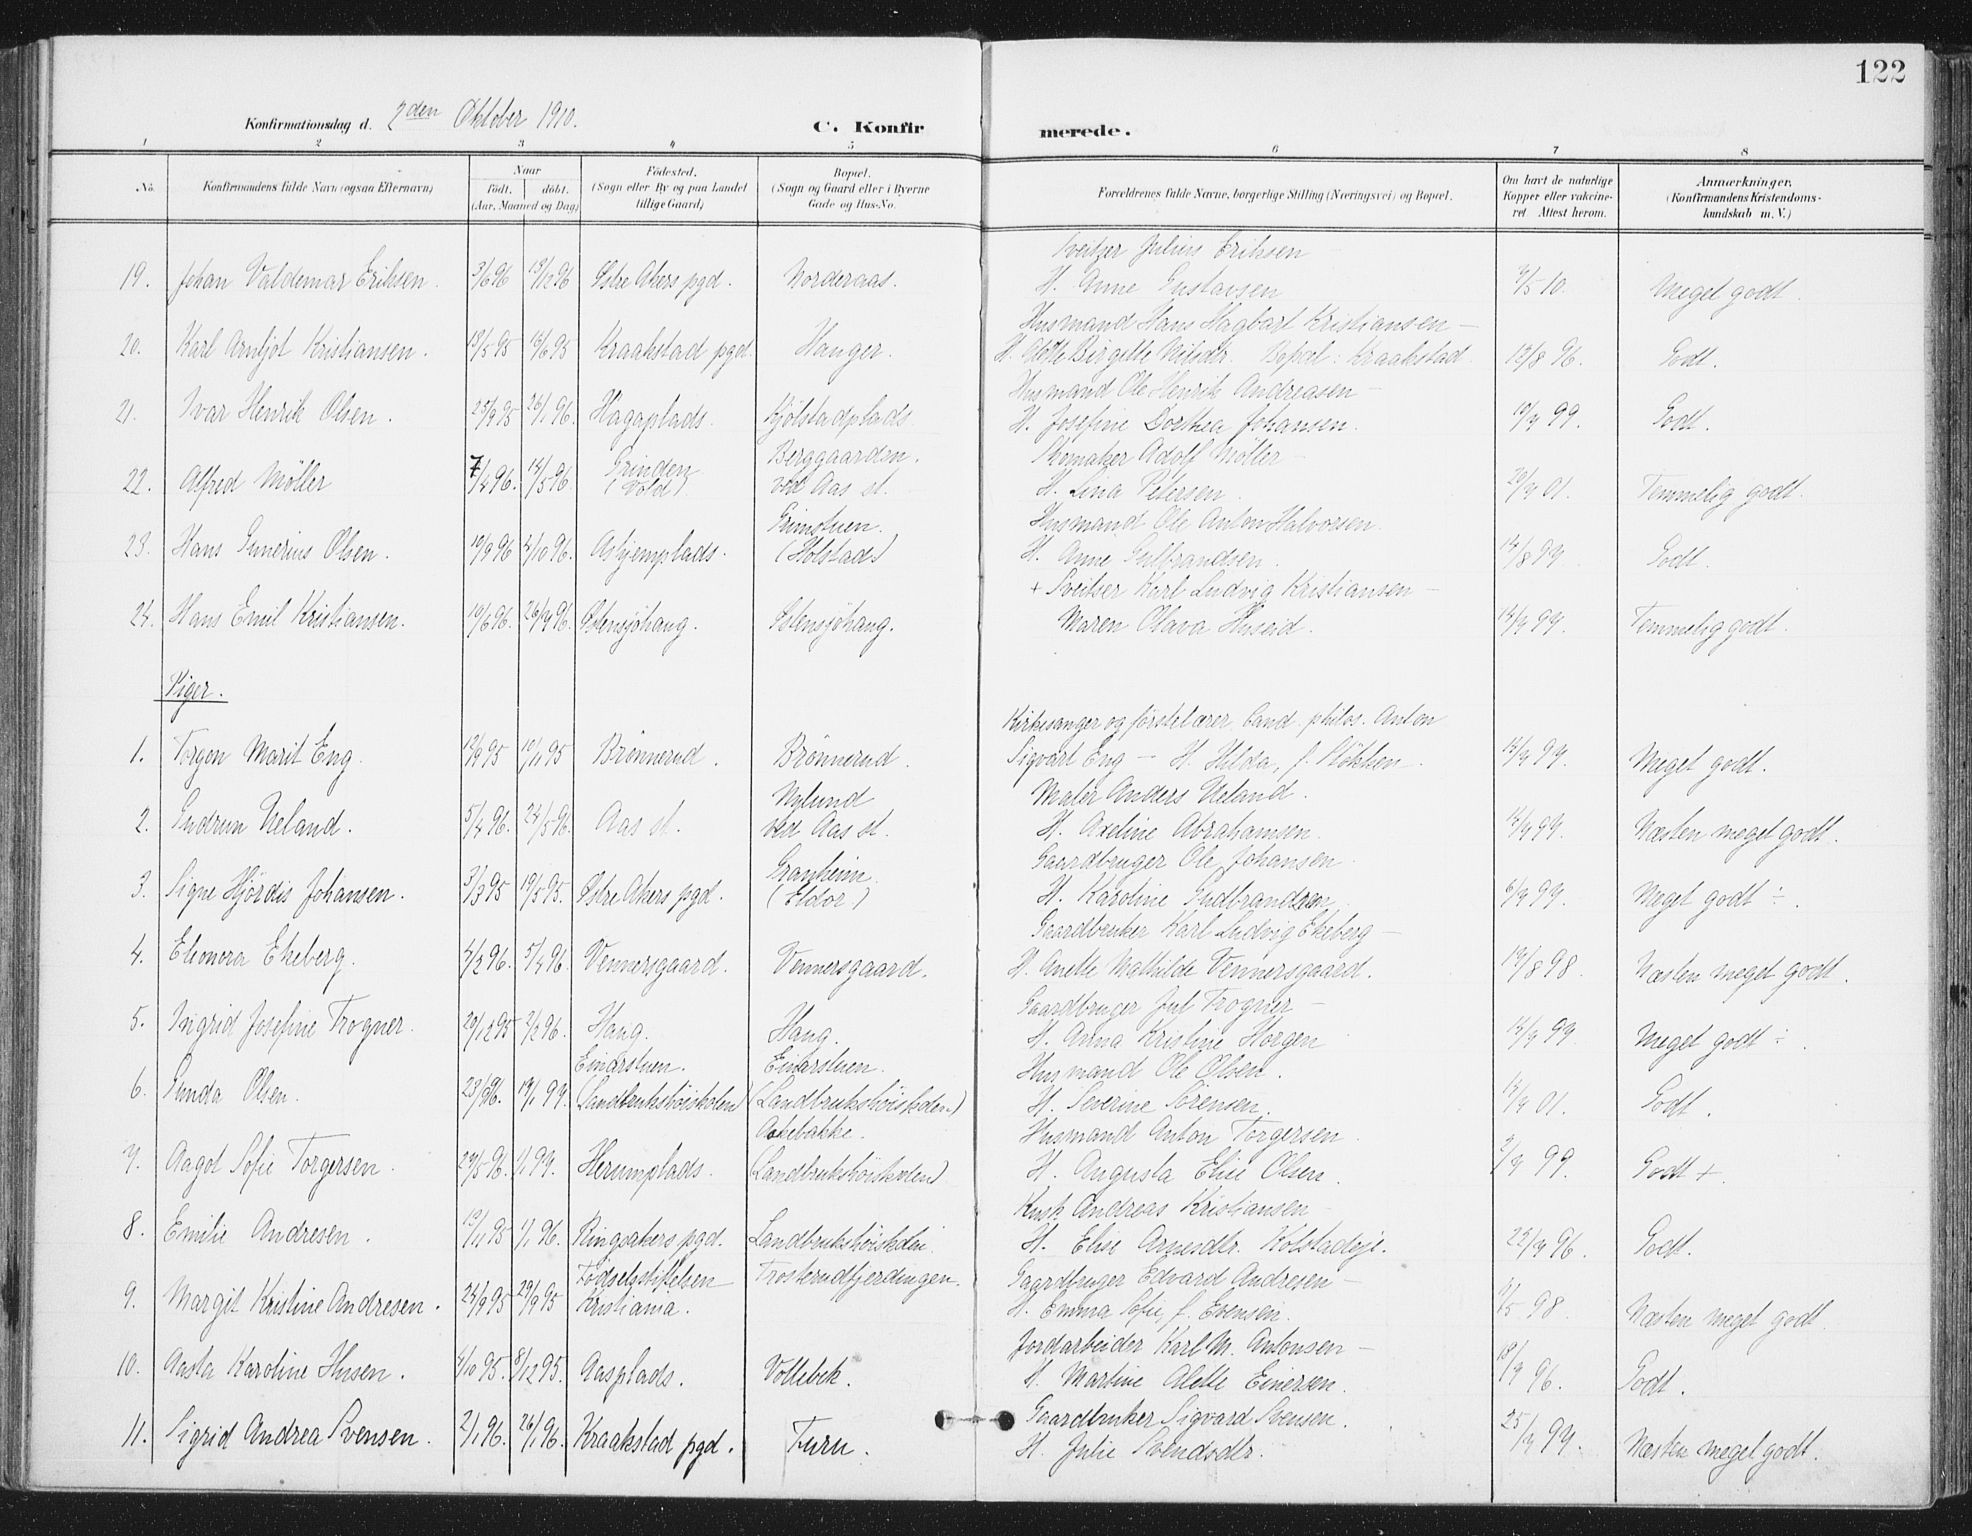 122
Konfirmationsdag d. 2den Oktober 1910.
C. Konfirmerede.
1 2 3 4 5 6 7 8
No.
Konfirmandens fulde Navn (ogsaa Efternavn)
Naar
født. døbt.
(Aar, Maaned og Dag)
Fødested.
(Sogn eller By og paa Landet
tillige Gaard)
Bopæl.
(Sogn og Gaard eller i Byerne
Gade og Hus-No.
Forældrenes fulde Navne, borgerlige Stilling (Næringsvei) og Bopæl.
Om havt de naturlige
Kopper eller vakcine-
ret Attest herom.
Anmærkninger.
(Konfirmandens Kristendoms-
kundskab m. V.)
Sveitser Julius Eriksen
19. Johan Valdemar Eriksen. 3/6 96 13/12 96 Østre Akers pgd. Norderaas. H. Anne Gustavsen 7/5 10. Meget godt.
Husmand Hans Hagbart Kristiansen —
20. Karl Arnljot Kristiansen. 13/5 95 16/6 95 Kraakstad pgd. Hauger. H. Alette Birgitte Nilsdr. Bopæl: Kraakstad 13/8 96. Godt.
Husmand Ole Henrik Andreasen —
21. Ivar Henrik Olsen. 25/9 95 26/1 96. Hagaplads. Kjølstadplads. H. Josefine Dorthea Johansen. 19/9 99. Godt.
Berggaarden. Skomaker Adolf Møller —
22. Alfred Møller 7/4 96. 14/5 96. Grinden (Vold). ved Aas st. H. Lina Petersen. 20/9 01. Temmelig godt.
Grimstuen. Husmand Ole Anton Halvorsen.
23. Hans Gunerius Olsen. 10/9 96 4/10 96. Askjemplads. (Holstad) H. Anne Gulbrandsen. 14/8 99 Godt.
+ Sveitser Karl Ludvig Kristiansen —
24. Hans Emil Kristiansen. 10/6 96. 26/7 96. Østensjøhaug. Østensjøhaug. Maren Olava Huseid. 14/9 99. Temmelig godt.
Piger.
Kirkesanger og førstelærer Cand. philos. Anton
1. Torgon Marit Eng. 12/9 95 10/11 95 Brønnerud. Brønnerud. Sigvart Eng — H. Hilda, f. Støkken. 14/9 99. Meget godt.
Nylund Maler Anders Ueland.
2. Gudrun Ueland. 5/4 96. 24/5 96. Aas st. ved Aas st. H. Axeline Abrahamsen. 14/9 99. Næsten meget godt.
Granheim. Gaardbruger Ole Johansen
3. Signe Hjørdis Johansen. 3/3 95 19/5 95. Østre Akers pgd. (Eldor) H. Karoline Gudbrandsen 6/9 99. Meget godt ÷.
Gaardbruker Karl Ludvig Ekeberg —
4. Eleonora Ekeberg. 4/2 96. 5/4 96. Vennersgaard. Vennersgaard. H. Anette Mathilde Vennersgaard. 19/8 98. Næsten meget godt.
Gaardbruger Jul Trogner —
5. Ingrid Josefine Trogner. 20/12 95 2/2 96. Haug. Haug. H. Anna Kristine Horgen 14/9 99. Meget godt ÷.
Einarstuen. Einarstuen. Husmand Ole Olsen.
6. Gunda Olsen. 23/8 96. 19/1 99. (Landbrukshøiskolen) (Landbrukshøiskolen) H. Severine Sørensen. 14/9 01. Godt.
Akebakke. Husmand Anton Torgersen
7. Aagot Sofie Torgersen. 29/5 96. 1/1 99. Herumplads. (Landbrukshøiskolen) H. Augusta Elise Olsen. 3/9 99. Godt +.
Kusk Andreas Kristiansen
8. Emilie Andresen. 13/11 95 1/1 96. Ringsakers pgd. Landbrukshøiskolen. H. Elise Arnesdtr. Kolstadeje. 23/9 96. Godt.
Fødselsstiftelsen Trosterudfjerdingen. Gaardbruger Edvard Andresen —
9. Margit Kristine Andresen. 24/9 95 29/9 95 Kristiania. H. Emma Sofie, f. Evensen. 11/5 98. Næsten meget godt
Jordarbeider Karl M. Antonsen —
10. Aasta Karoline Husen. 4/10 95. 8/12 95. Aasplads. Vollebek. H. Martine Alette Einersen. 18/9 96. Godt.
Gaardbruker Sigvard Svensen.
11. Sigrid Andrea Svensen. 2/1 96. 26/1 96. Kraakstad pgd. Furu. H. Julie Svendsdtr. 25/7 99. Næsten meget godt.